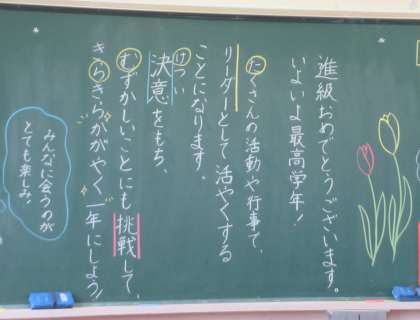 進級おめでとうございます。
いよいよ最高学年！
たくさんの活動や行事で、
リーダーとして活やくする
ことになります。
けつい
決意をもち、
むずかしいことにも挑戦して、
きらきらかがやく一年にしよう！
みんなに会うのが
とても楽しみ！